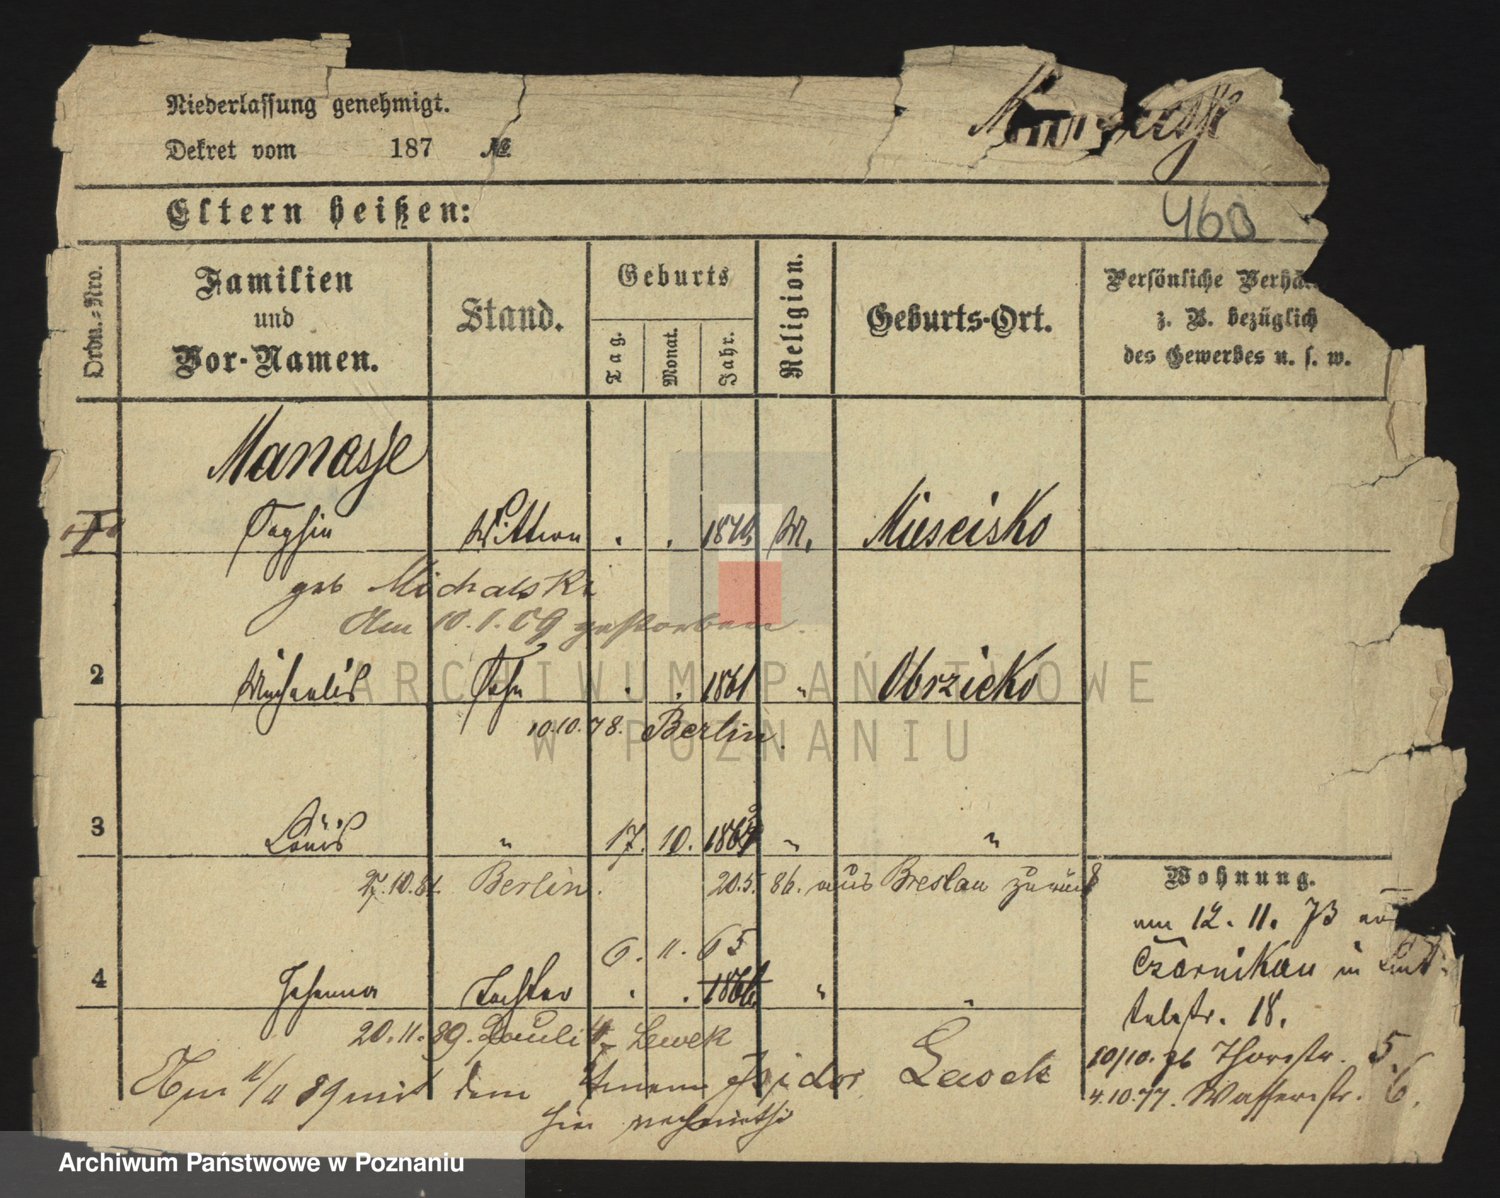 Niederlassung genehmigt.
Dekret vom 187 №
Manasse
460
Eltern heißen:
Ordn.-Nro.
Familien
und
Vor-Namen.
Stand.
Geburts
Tag.
Monat.
Jahr.
Religion.
Geburts-Ort.
Persönliche Verhä
z. B. bezüglich
des Gewerbes u. s. w.
Manasse
1 Wittwe . . M. Miescisko
geb Michalski
Am 10.1.09 gestorben.
2 Michaelis Sohn . . 1861 " Obrzicko
10.10.78. Berlin.
3 Louis " 17. 10. " "
27.10.81. Berlin. 20.5. 86. aus Breslau zurück
6. 11. 65
4 Johanna Tochter . . 1866 " "
20.11.89. Lewek
Am 11/11 89 mit dem Isidor Lasek
hier
Wohnung.
am 12. 11. 73 aus
Czarnikau in
str. 18.
10/10.76 Thorstr. 5.
4.10.77. Wasserstr. 6.
ARCHIWUM PAŃSTWOWE
W POZNANIU
Archiwum Państwowe w Poznaniu